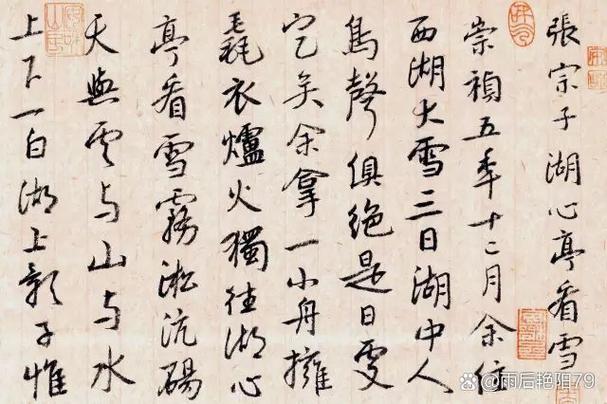 張宗子湖心亭看雪
崇禎五年十二月余住
西湖大雪三日湖中人
鳥聲俱絕是日更
定矣余拿一小舟擁
毳衣爐火獨往湖心
亭看雪霧淞沆碭
天與云与山与水
上下一白湖上影子惟
@雨后艳阳79